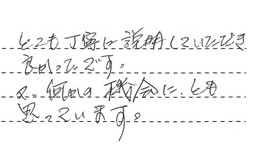 とても丁寧に説明していただき
良かったです。
又、何かの機会に、とも
思っています。